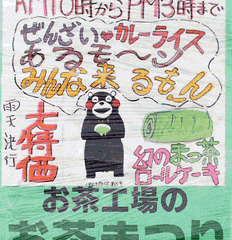 AM10時からPM3時まで
ぜんざい♥カレーライス
あるモ〜ン
みんな来るもん
雨天決行
大特価
幻のまっ茶
ロールケーキ
お茶工場の
お茶まつり